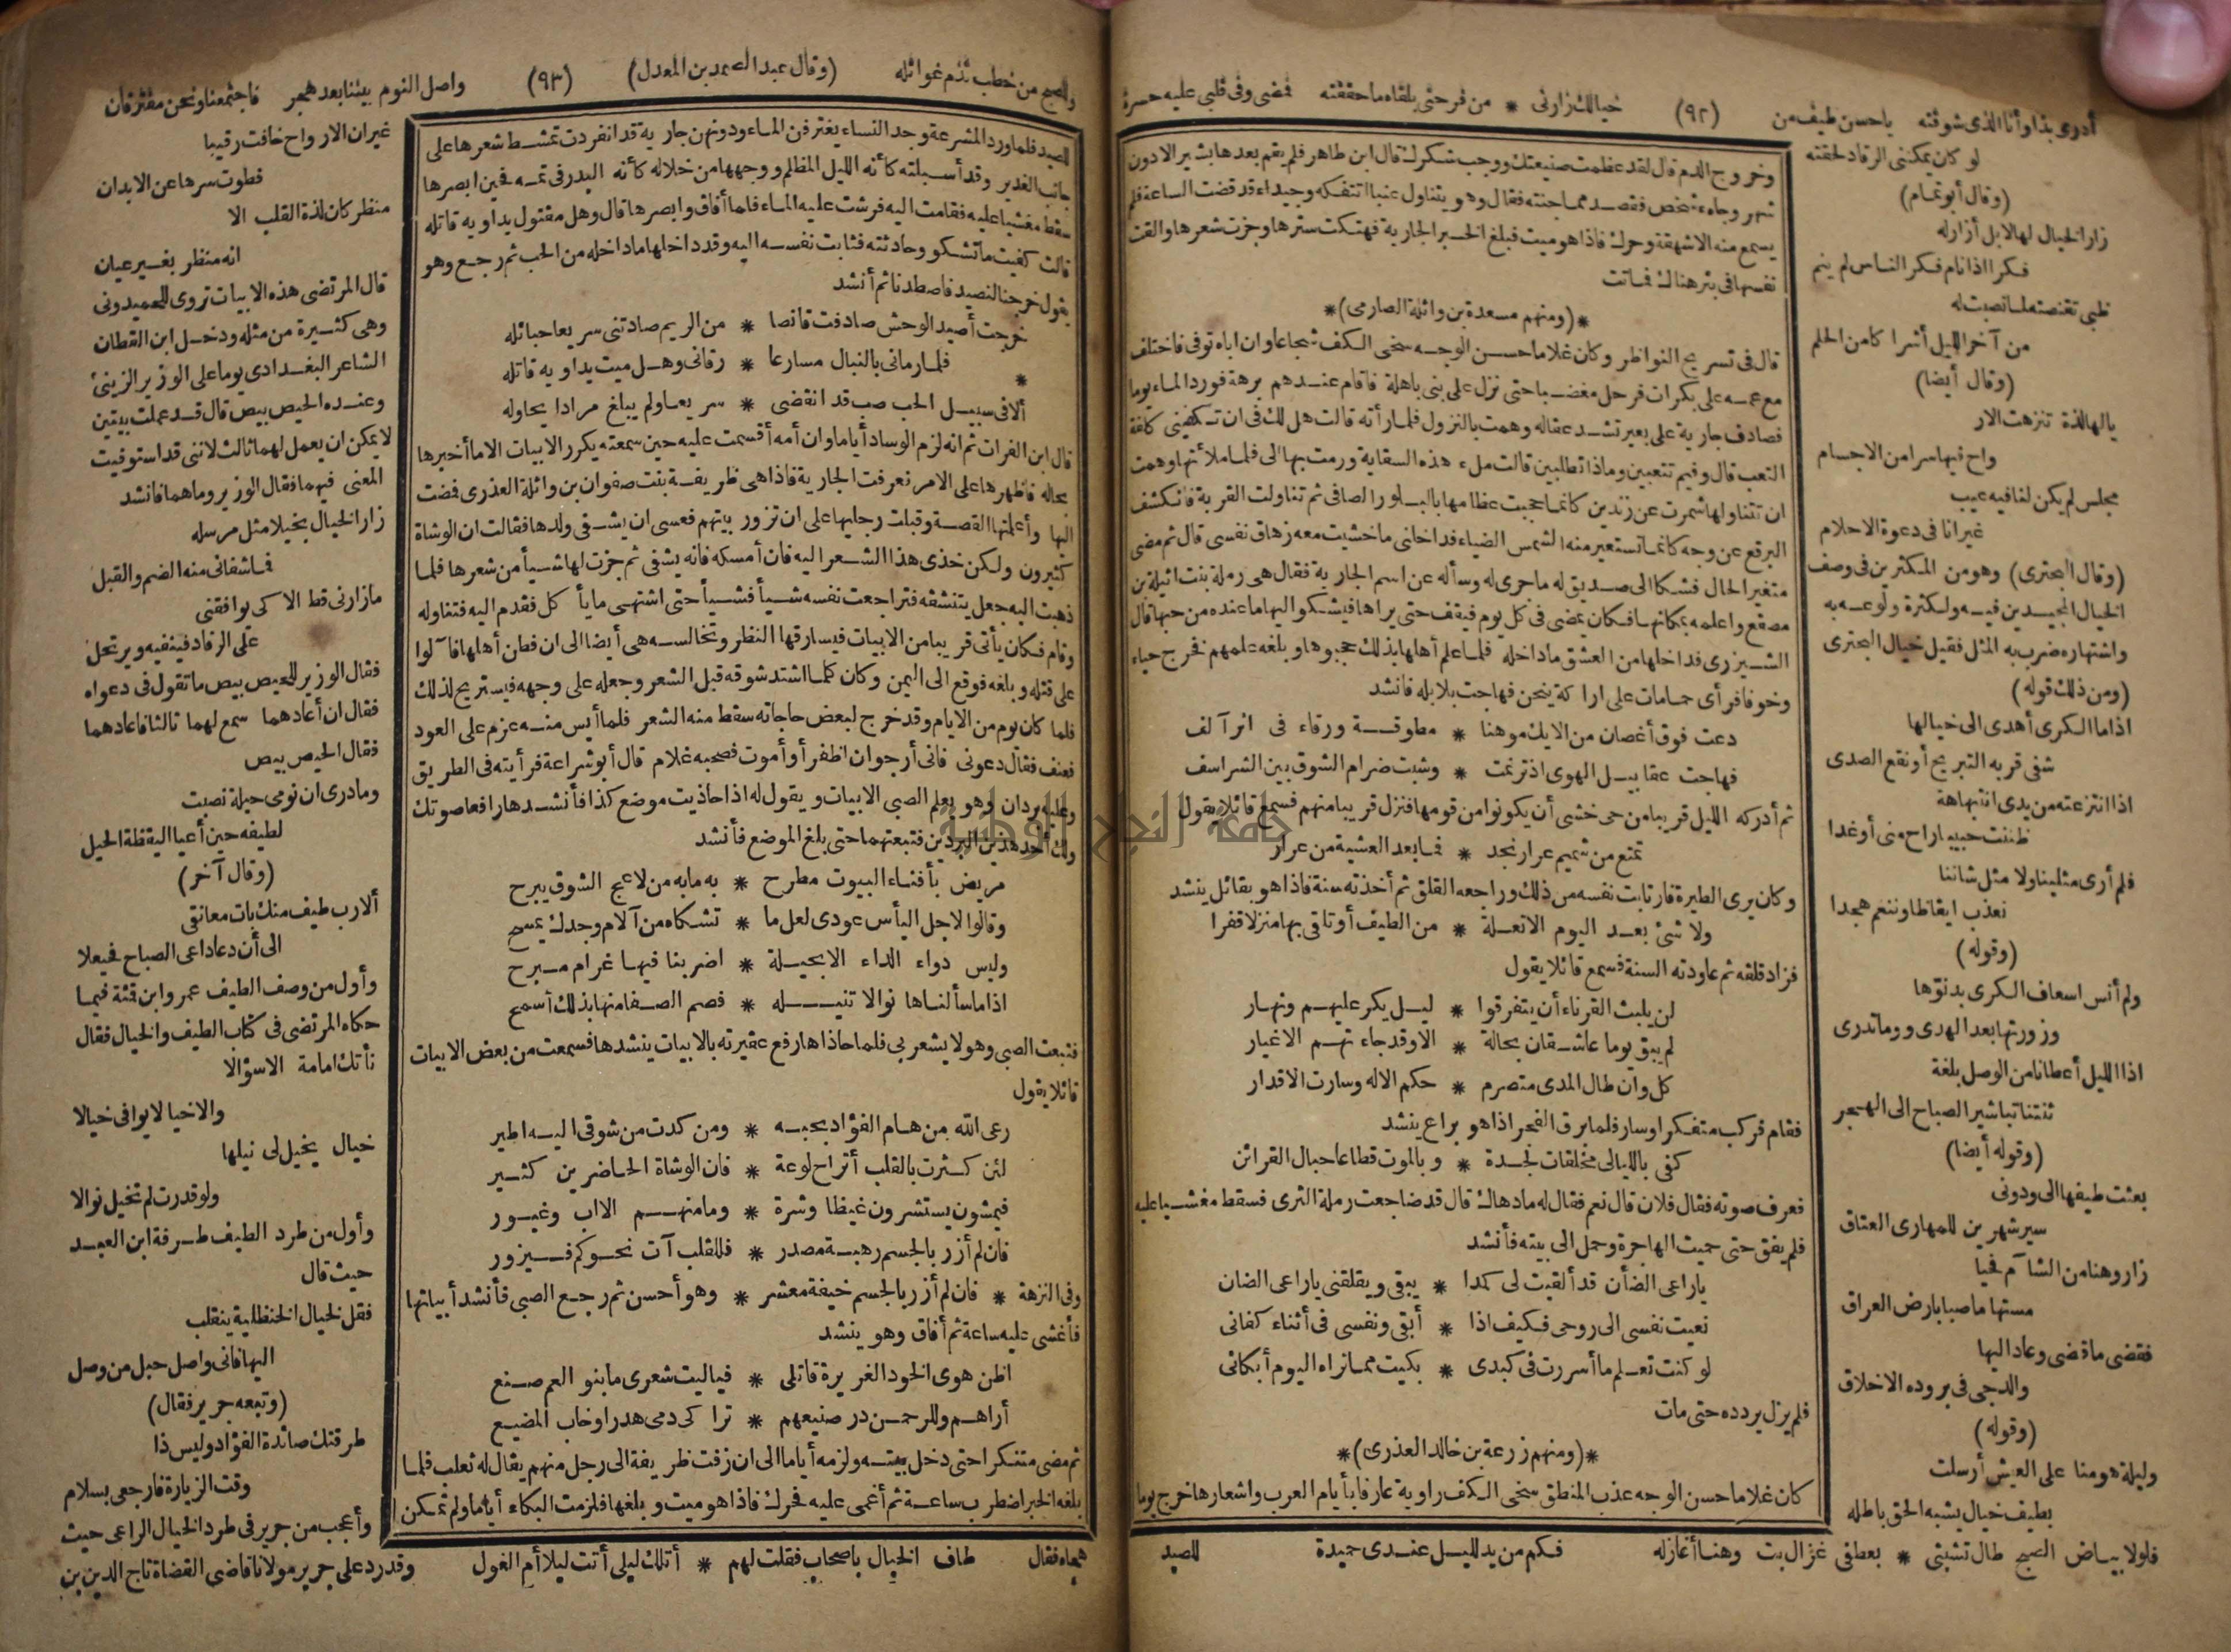 أدرى بذا وأنا الذى شوقته ياحسن طيف من (٩٢) خيالك زارنى * من فرحتى بلقاه ماحققته فمضى وفى قلبى عليه حسرة
لو كان يمكننى الرقاد لحقته
(وقال أبوتمام)
زار الخيال لها لابل أزاركه
فكر اذا نام فكر الناس لم ينم
ظبى تقنصته لما نصبت له
من آخر الليل أشرا كا من الحلم
(وقال أيضا)
يالها لذة تنزهت الار
واح فيها سرا من الاجسام
مجلس لم يكن لنا فيه عيب
غير انا فى دعوة الاحلام
(وقال البحترى) وهو من المكثرين فى وصف
الخيال المجيدين فيه ولكثرة ولوعه به
واشتهاره ضرب به المثل فقيل خيال البحترى
(ومن ذلك قوله)
اذا ما الكرى أهدى الى خيالها
شفى قربه التبريح أو نقع الصدى
اذا انتزعته من يدى انتباهة
ظننت حبيبا راح منى أو غدا
فلم أرى مثلينا ولا مثل شاننا
نعذب ايقاظا وننعم هجدا
(وقوله)
ولم أنس اسعاف الكرى بدنوّها
وزورتها بعد الهدى وما تدرى
اذا الليل أعطانا من الوصل بلغة
ثنتنا تباشير الصباح الى الهجر
(وقوله أيضا)
بعثت طيفها الى ودونى
سير شهرين للمهارى العتاق
زار وهنا من الشآم فحيا
مستهاما صبا بارض العراق
فقضى ما قضى وعاد اليها
والدجى فى بروده الاخلاق
(وقوله)
وليلة هومنا على العيش أرسلت
بطيف خيال يشبه الحق باطله
فلولا بياض الصبح طال تشبثى * بعطفى غزال بت وهنا أغازله فكم من يد لليل عندى حميدة
وخروج الدم قال لقد عظمت صنيعتك ووجب شكرك قال ابن طاهر فلم يقم بعدها بشير الادون
شهر وجاءه شخص فقصد مما جنته فقال وهو يتناول عنبا اتتفكه وجيداء قد قضت الساعة فلم
يسمع منه الاشهقة وحرك فاذا هو ميت فبلغ الخبر الجارية فهتكت سترها وجزت شعرها والقت
نفسها فى بئر هناك فماتت
*(ومنهم مسعدة بن واثلة الصارمى)*
قال فى تسريح النواظر وكان غلاما حسن الوجه سخى الكف شجاعا وان اباه توفى فاختلف
مع عمه على بكران فرحل مغضبا حتى نزل على بنى باهلة فاقام عندهم برهة فورد الماء يوما
فصادف جارية على بعير تشد عقاله وهمت بالنزول فلما رأته قالت هل لك فى ان تكفينى كلفة
التعب قال وفيم تتعبين وماذا تطلبين قالت ملء هذه السقاية ورمت بها الى فلما ملأتها وهمت
ان تتناولها شمرت عن زندين كانما عجبت عظامها بالبلور الصافى ثم تناولت القربة فانكشف
البرقع عن وجه كانما تستعير منه الشمس الضياء فداخلنى ما خشيت معه زهاق نفسى قال ثم مضى
متغير الحال فشكا الى صديق له ماجرى له وسأله عن اسم الجارية فقال هى رملة بنت اثيلة بن
مصقع واعلمه بمكانها فكان يمضى فى كل يوم فيقف حتى يراها فيشكو اليها ما عنده من حبها قال
الشيزرى فداخلها من العشق ماداخله فلما علم أهلها بذلك حجبوها وبلغه علمهم فخرج حياء
وخوفا فرأى حمامات على اراكة ينحن فهاجت بلابله فانشد
دعت فوق أغصان من الايك موهنا * مطوقة ورقاء فى اثر آلف
فهاجت عقابيل الهوى اذ ترنمت * وشبت ضرام الشوق بين الشراسف
ثم أدركه الليل قريبا من حى خشى أن يكونوا من قومها فنزل قريبا منهم فسمع قائلا يقول
تمتع من شميم عرار نجد * فما بعد العشية من عرار
وكان يرى الطيرة فارتابت نفسه من ذلك وراجعه القلق ثم أخذته سنة فاذا هو بقائل ينشد
ولا شئ بعد اليوم الاتعلة * من الطيف أو تلقى بها منزلا قفرا
فزاد قلقه ثم عاودته السنة فسمع قائلا يقول
لن يلبث القرناء أن يتفرقوا * ليل يكر عليهم ونهار
لم يبق يوما عاشقان بحالة * الا وقد جاءتهم الاغيار
كل وان طال المدى متصرم * حكم الاله وسارت الاقدار
فقام فركب متفكرا وسار فلما برق الفجر اذا هو براع ينشد
كفى بالليالى مخلقات لجدة * وبالموت قطاعا حبال القرائن
فعرف صوته فقال فلان قال نعم فقال له مادهاك قال قد ضاجعت رملة الثرى فسقط مغشيا عليه
فلم يفق حتى حميت الهاجرة وحمل الى بيته فأنشد
ياراعى الضأن قد ألقيت لى كمدا * يبقى ويقلقنى ياراعى الضان
نعيت نفسى الى روحى فكيف اذا * أبقى ونفسى فى أثناء كفانى
لو كنت تعلم ما أسررت فى كبدى * بكيت مما تراه اليوم أبكانى
فلم يزل يردده حتى مات
*(ومنهم زرعة بن خالد العذرى)*
كان غلاما حسن الوجه عذب المنطق سخى الكف راوية عارفا بأيام العرب واشعارها خرج يوما
للصيد
وللصبح من خطب تذم غوائله (وقال عبدالصمد بن المعدل) (٩٣) واصل النوم بيننا بعد هجر فاجتمعنا ونحن مفترقان
للصيد فلما ورد المشرعة وجد النساء يغترفن الماء ودونهن جارية قد انفردت تمشط شعرها على
جانب الغدير وقد أسبلته كأنه الليل المظلم ووجهها من خلاله كأنه البدر فى تمه فحين ابصرها
سقط مغشيا عليه فقامت اليه فرشت عليه الماء فلما أفاق وابصرها قال وهل مقتول يداويه قاتله
قالت كفيت ما تشكو وحادثته فثابت نفسه اليه وقد داخلها ماداخله من الحب ثم رجع وهو
يقول خرجنا للصيد فاصطدنا ثم أنشد
خرجت أصيد الوحش صادفت قانصا * من الريم صادتنى سريعا حبائله
فلما رمانى بالنبال مسارعا * رقانى وهل ميت يداويه قاتله
* ألا فى سبيل الحب صب قد انقضى * سريعا ولم يبلغ مرادا يحاوله
قال ابن الفرات ثم انه لزم الوساد أياما وان أمه أقسمت عليه حين سمعته يكرر الابيات الاما أخبرها
بحاله فاظهرها على الامر فعرفت الجارية فاذا هى ظريفة بنت صفوان بن واثلة العذرى فمضت
اليها وأعلمتها القصة وقبلت رجليها على ان تزور بيتهم فعسى ان يشفى ولدها فقالت ان الوشاة
كثيرون ولكن خذى هذا الشعر اليه فان أمسكه فانه يشفى ثم جزت لها شيأ من شعرها فلما
ذهبت اليه جعل يتنشقه فتراجعت نفسه شيأ فشيأ حتى اشتهى ما يأكل فقدم اليه فتناوله
وقام فكان يأتى قريبا من الابيات فيسارقها النظر وتخالسه هى أيضا الى ان فطن أهلها فآلوا
على قتله وبلغه فوقع الى اليمن وكان كلما اشتد شوقه قبل الشعر وجعله على وجهه فيستريح لذلك
فلما كان يوم من الايام وقد خرج لبعض حاجاته سقط منه الشعر فلما أيس منه عزم على العود
فعنف فقال دعونى فانى أرجو ان اظفر أو أموت فصحبه غلام قال أبو شراعة فرأيته فى الطريق
وعليه بردان وهو يعلم الصبى الابيات ويقول له اذا حاذيت موضع كذا فأنشدها رافعا صوتك
ولك أحد هذين البردين فتبعتهما حتى بلغ الموضع فأنشد
مريض بأفناء البيوت مطرح * به مابه من لاعج الشوق يبرح
وقالوا لاجل اليأس عودى لعل ما * تشكاه من آلام وجدك يمسح
وليس دواء الداء الا بحيلة * اضر بنا فيها غرام مبرح
اذا ما سألناها نوالا تنيله * فصم الصفا منها بذلك أسمح
فتبعت الصبى وهو لا يشعر بى فلما حاذاها رفع عقيرته بالابيات ينشدها فسمعت من بعض الابيات
قائلا يقول
رعى الله من هام الفؤاد بحبه * ومن كدت من شوقى اليه اطير
لئن كثرت بالقلب أتراح لوعة * فان الوشاة الحاضرين كثير
فيمشون يستشرون غيظا وشرة * وما منهم الا اب وغيور
فان لم أزر بالجسم رهبة مصدر * فللقلب آت نحوكم فيزور
وفى النزهة * فان لم أزر بالجسم خيفة معشر * وهو أحسن ثم رجع الصبى فأنشد أبياتها
فأغشى عليه ساعة ثم أفاق وهو ينشد
اظن هوى الخود الغريرة قاتلى * فياليت شعرى ما بنو العم صنع
أراهم وللرحمن در صنيعهم * تراكى دمى هدرا وخاب المضيع
ثم مضى متنكرا حتى دخل بيته ولزمه أياما الى ان زفت ظريفة الى رجل منهم يقال له ثعلب فلما
بلغه الخبر اضطرب ساعة ثم أغمى عليه فحرك فاذا هو ميت وبلغها فلزمت البكاء أياما ولم تمكن
غير ان الارواح خافت رقيبا
فطوت سرها عن الابدان
منظر كان لذة القلب الا
انه منظر بغير عيان
قال المرتضى هذه الابيات تروى للحميدونى
وهى كثيرة من مثله ودخل ابن القطان
الشاعر البغدادى يوما على الوزير الزينبى
وعنده الحيص بيص قال قد عملت بيتين
لا يمكن ان يعمل لهما ثالث لاننى قد استوفيت
المعنى فيهما فقال الوزير وماهما فانشد
زار الخيال بخيلا مثل مرسله
فما شفانى منه الضم والقبل
مازارنى قط الا كى يوافقنى
على الرقاد فينفيه ويرتحل
فقال الوزير للحيص بيص ما تقول فى دعواه
فقال ان أعادهما سمع لهما ثالثا فاعادهما
فقال الحيص بيص
ومادرى ان نومى حيلة نصبت
لطيفه حين أعيا اليقظة الحيل
(وقال آخر)
ألارب طيف منك بات معانقى
الى أن دعا داعى الصباح فحيعلا
وأول من وصف الطيف عمرو ابن قمئة فيما
حكاه المرتضى فى كتاب الطيف والخيال فقال
نأتك امامة الا سؤالا
والا خيالا يوافى خيالا
خيال يخيل لى نيلها
ولو قدرت لم تخيل نوالا
وأول من طرد الطيف طرفة ابن العبد
حيث قال
فقل لخيال الحنظلية ينقلب
اليها فانى واصل حبل من وصل
(وتبعه جرير فقال)
طرقتك صائدة الفؤاد وليس ذا
وقت الزيارة فارجعى بسلام
وأعجب من جرير فى طرد الخيال الراعى حيث
طاف الخيال باصحابى فقلت لهم * أتلك ليلى أتت ليلا أم الغول وقد رد على جرير مولانا قاضى القضاة تاج الدين بن
جامعة النجاح الوطنية